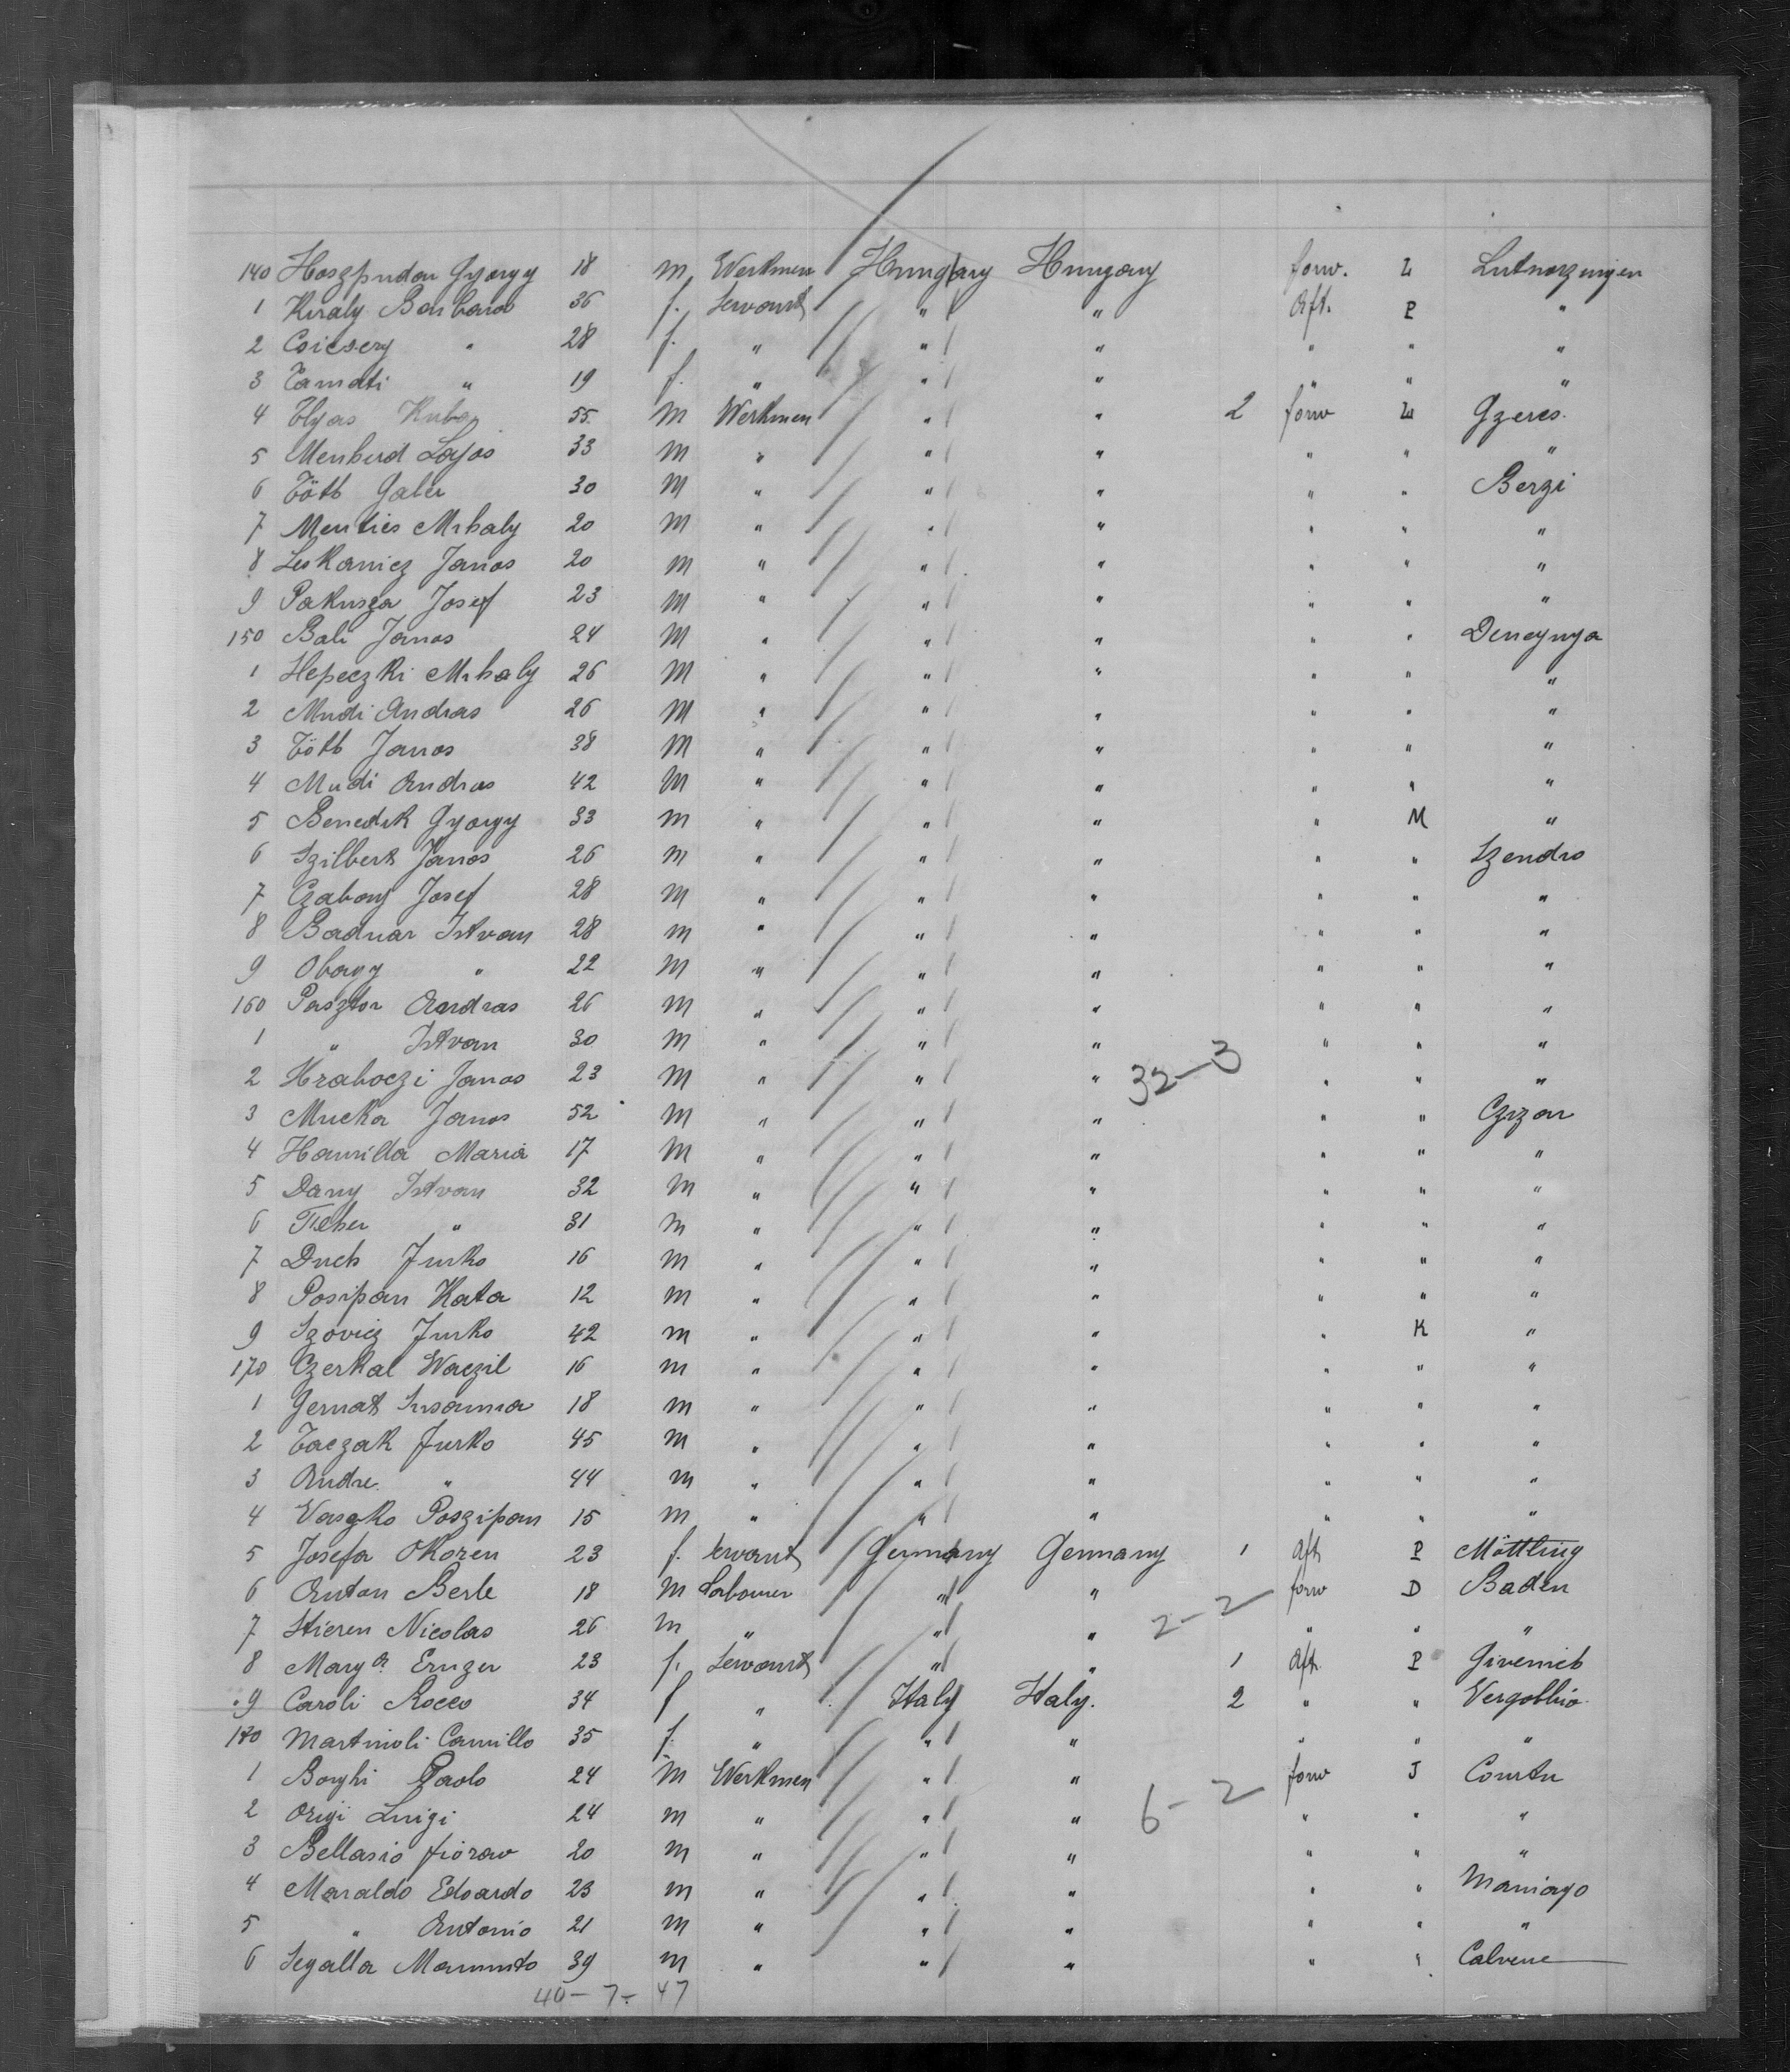 140 Hoszpudar Gyorgy 18 m Werkmen Hungary Hungary forw. L Lutnarzingen
1 Kiraly Barbara 36 f. Servant " " Aft. P "
2 Csicsery " 28 f. " " " " " "
3 Tamati " 19 f. " " " " " "
4 Ilyas Kuba 55 M Werkmen " " 2 forw L Gzeres.
5 Menherd Lajos 33 M " " " " " "
6 Tóth Galu 30 M " " " " " Berzi
7 Menties Mihaly 20 M " " " " " "
8 Leskanicz Janos 20 M " " " " " "
9 Pakusza Josef 23 M " " " " " "
150 Bali Janos 24 M " " " " " Dengnya
1 Hepeczki Mihaly 26 M " " " " " "
2 Mudi Andras 26 M " " " " " "
3 Tóth Janos 38 M " " " " " "
4 Mudi Andras 42 M " " " " " "
5 Benedik Gyorgy 33 m " " " " M "
6 Szilbert Janos 26 m " " " " " Szendro
7 Czabony Josef 28 M " " " " " "
8 Badnar Istvan 28 m " " " " " "
9 Obagy " 22 M " " " " " "
160 Pasztor Andras 26 M " " " " " "
1 " Istvan 30 M " " " " " "
2 Hraboczi Janos 23 M " " " 32-3 " " "
3 Mucka Janos 52 M " " " " " Czizar
4 Hamilla Maria 17 M " " " " " "
5 Dany Istvan 32 M " " " " " "
6 Tieher " 31 m " " " " " "
7 Duch Jurko 16 m " " " " " "
8 Posipan Kata 12 m " " " " " "
9 Szovicz Jurko 42 m " " " " K "
170 Czerkal Waczil 16 m " " " " " "
1 Gernat Susanna 18 m " " " " " "
2 Taczak Jurko 45 m " " " " " "
3 Andre " 44 m " " " " " "
4 Vaszko Poszipan 15 m " " " " " "
5 Josefa Okoren 23 f. Servant Germany Germany 1 Aft P Möttling
6 Anton Berle 18 M Labourer " " forw D Baden
7 Stieren Nicolas 26 m " " " 2-2 " " "
8 Mary Ernzer 23 f. Servant " " 1 Aft. P Givenich
9 Caroli Rocco 34 f " Italy Italy. 2 " " Vergobbio
180 Martinoli Camillo 35 f. " " " " " "
1 Borghi Paolo 24 M Werkmen " " forw J Courtu
2 Origi Luigi 24 m " " " 6-2 " " "
3 Bellasio fiorav 20 m " " " " " "
4 Maraldo Edoardo 23 m " " " " " Maniago
5 " Antonio 21 m " " " " " "
6 Segalla Mammto 39 m " " " " " Calvene
40-7- 47